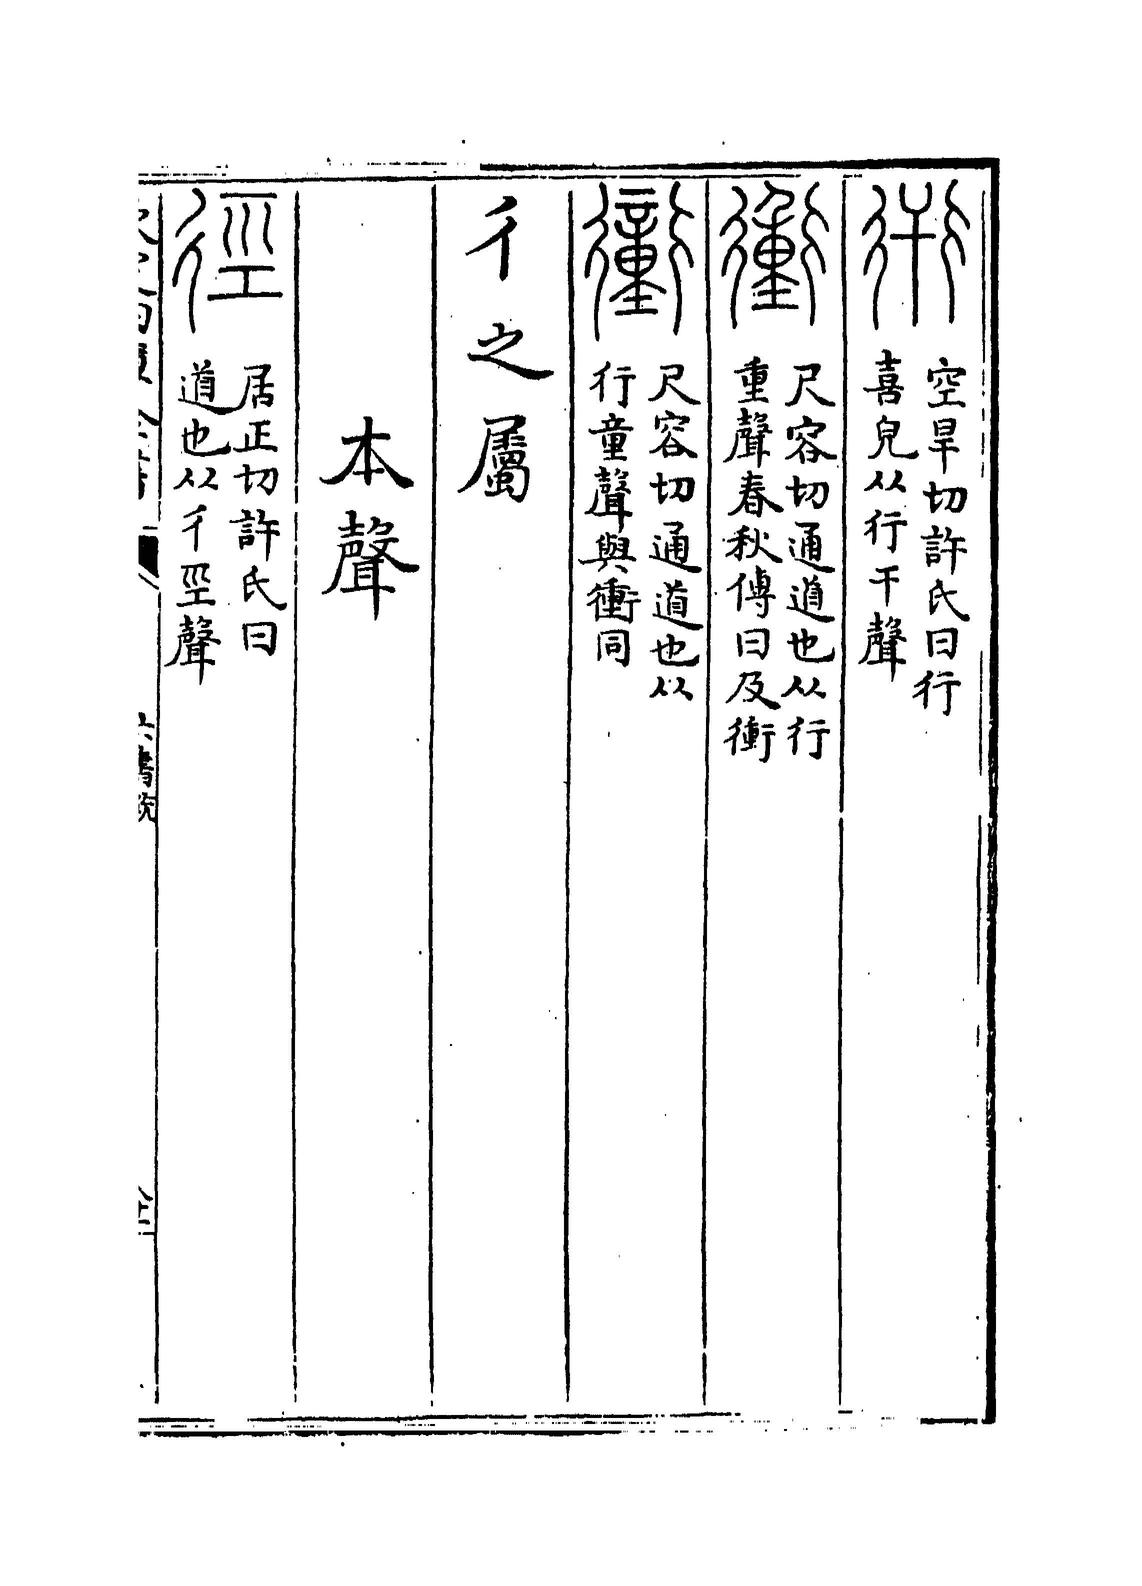 衎 空旱切許氏曰行
喜皃从行干聲
𧘂 尺容切通道也从行
重聲春秋傳曰及衝
衝 尺容切通道也从
行童聲與衝同
彳之屬
本聲
徑 居正切許氏曰
道也从彳巠聲
六書統